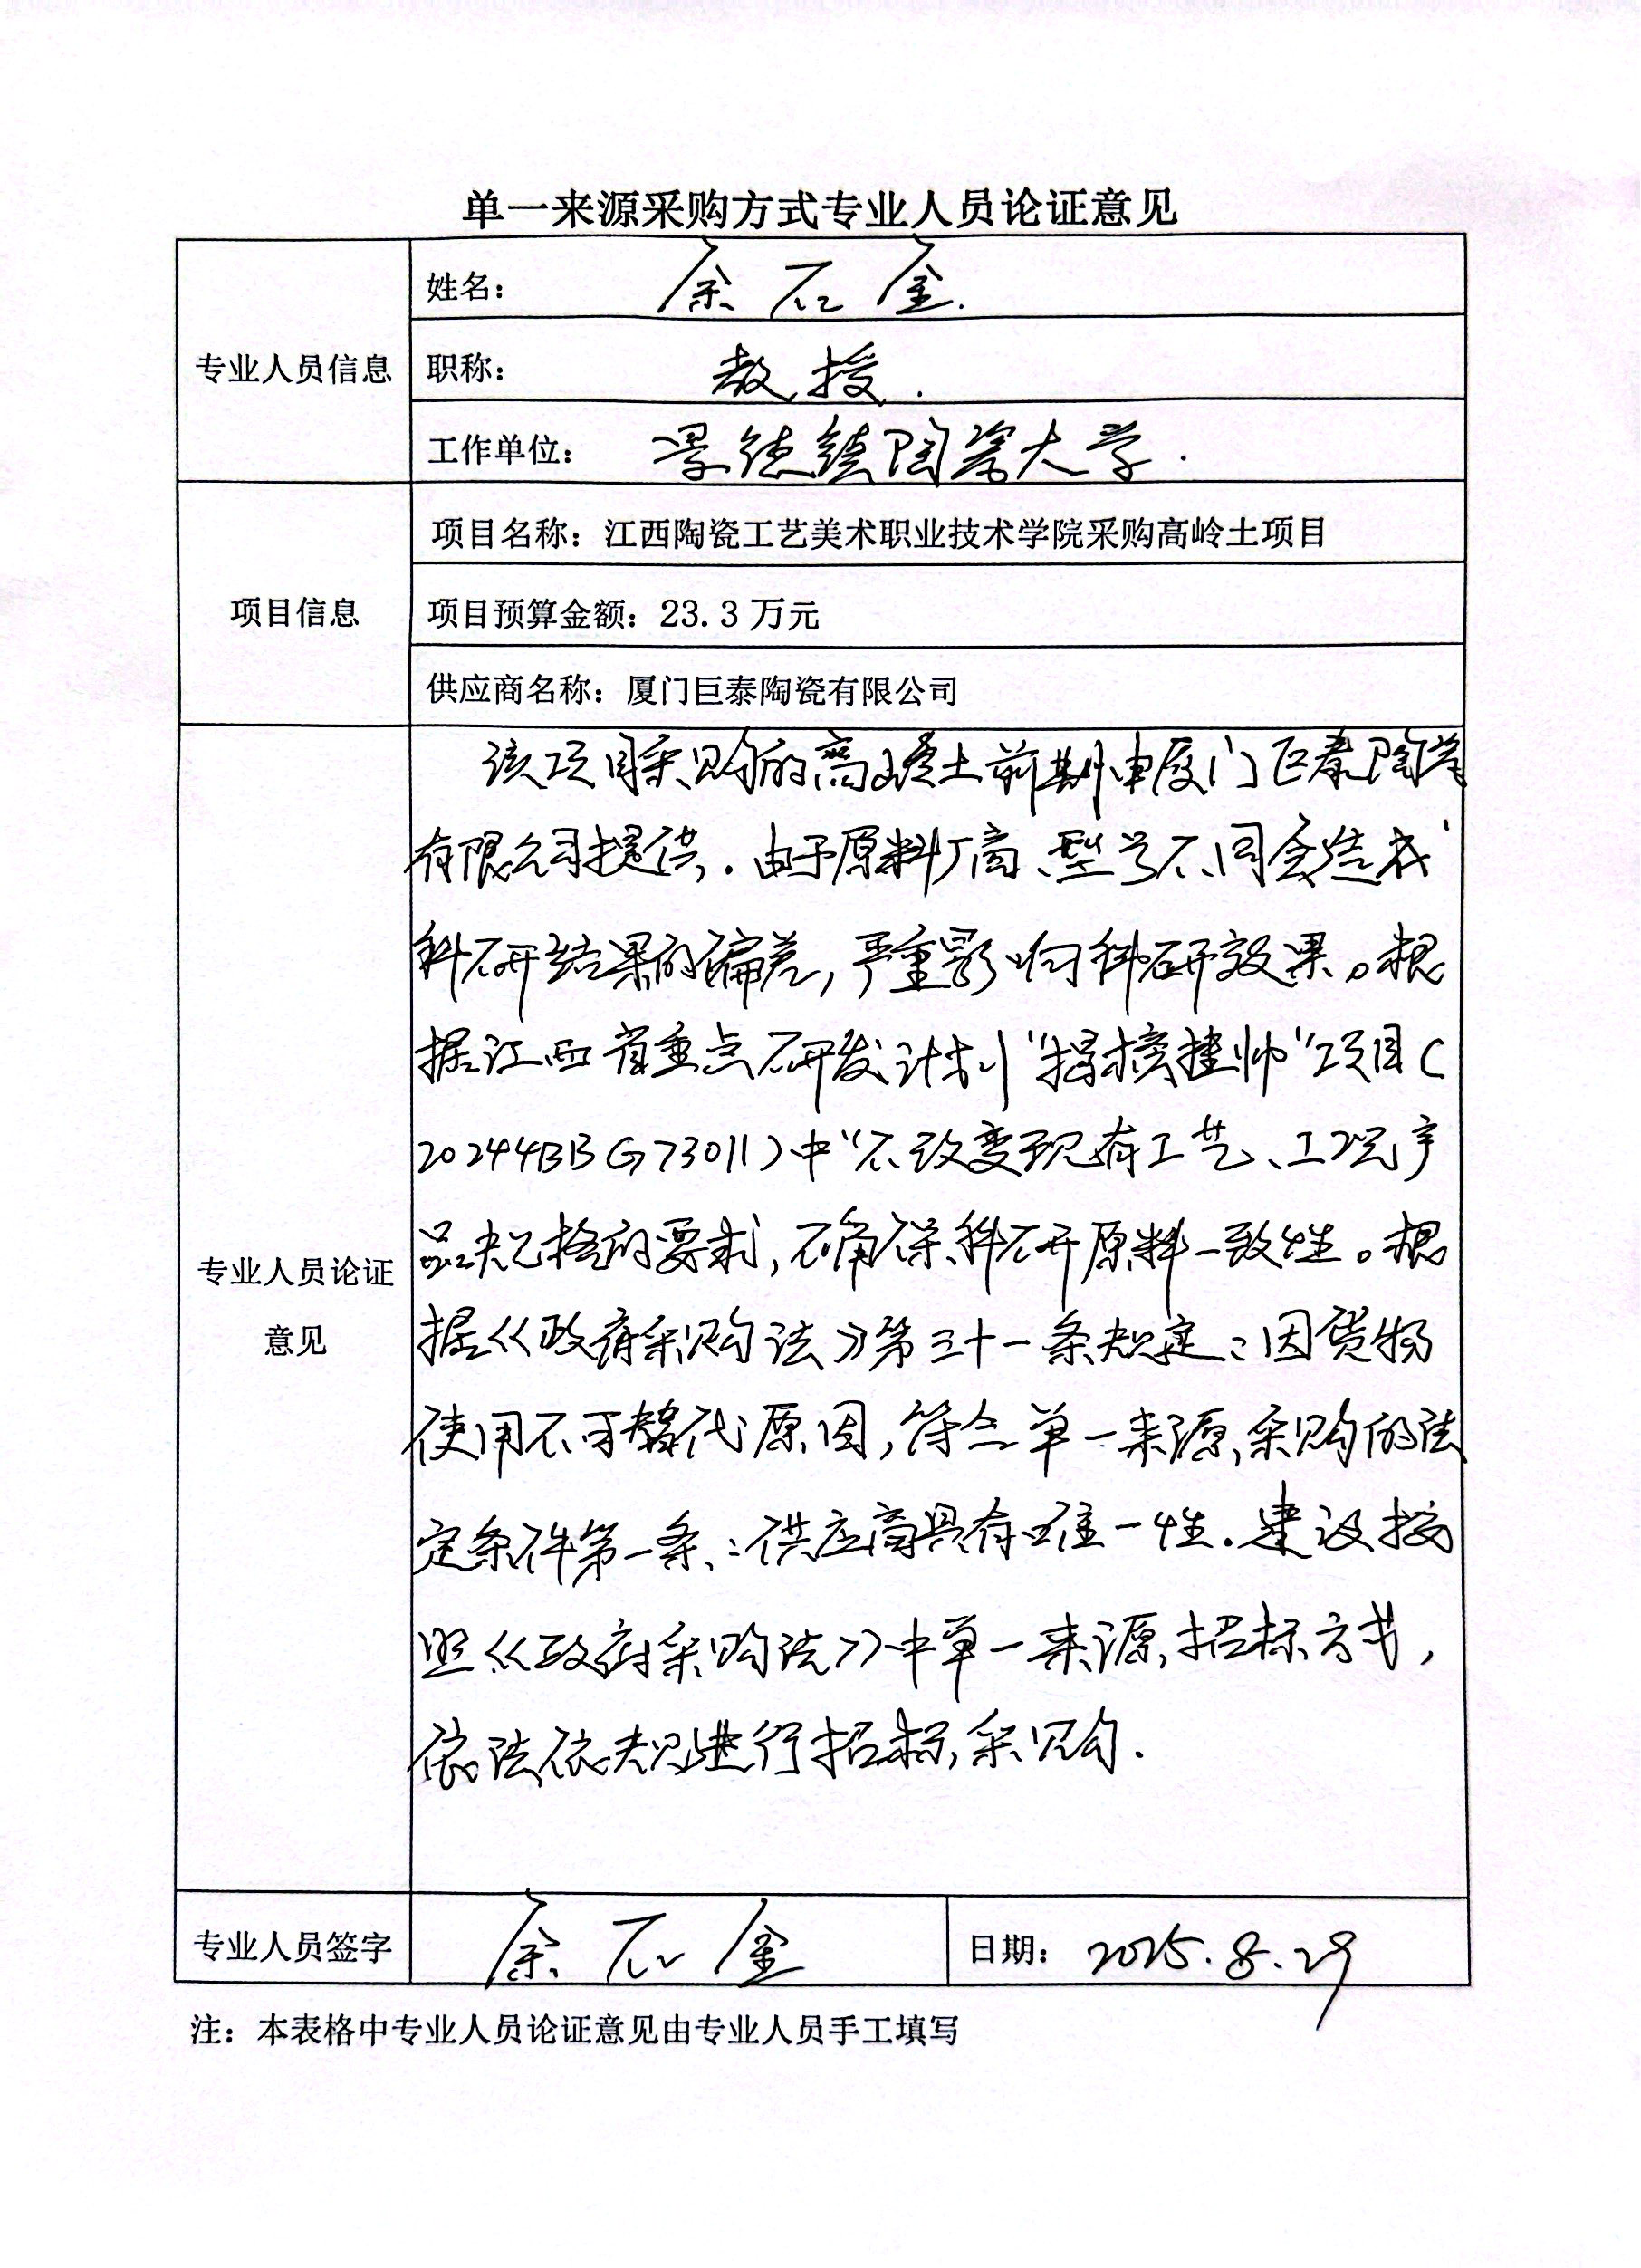 单一来源采购方式专业人员论证意见
专业人员信息
姓名： 余石金.
职称： 教授.
工作单位： 景德镇陶瓷大学.
项目信息
项目名称：江西陶瓷工艺美术职业技术学院采购高岭土项目
项目预算金额：23.3 万元
供应商名称：厦门巨泰陶瓷有限公司
专业人员论证
意见
该项目采购的高岭土前期由厦门巨泰陶瓷
有限公司提供.由于原料厂商、型号不同会造成
科研结果的偏差,严重影响科研效果。根
据江西省重点研发计划"揭榜挂帅"项目(
20244BBG73011)中"不改变现有工艺、工况产
品规格的要求,确保科研原料一致性。根
据《政府采购法》第三十一条规定:因货物
使用不可替代原因,符合单一来源采购的法
定条件第一条:供应商具有唯一性.建议按
照《政府采购法》中单一来源招标方式,
依法依规进行招标采购.
专业人员签字 余石金 日期： 2025.8.29
注：本表格中专业人员论证意见由专业人员手工填写